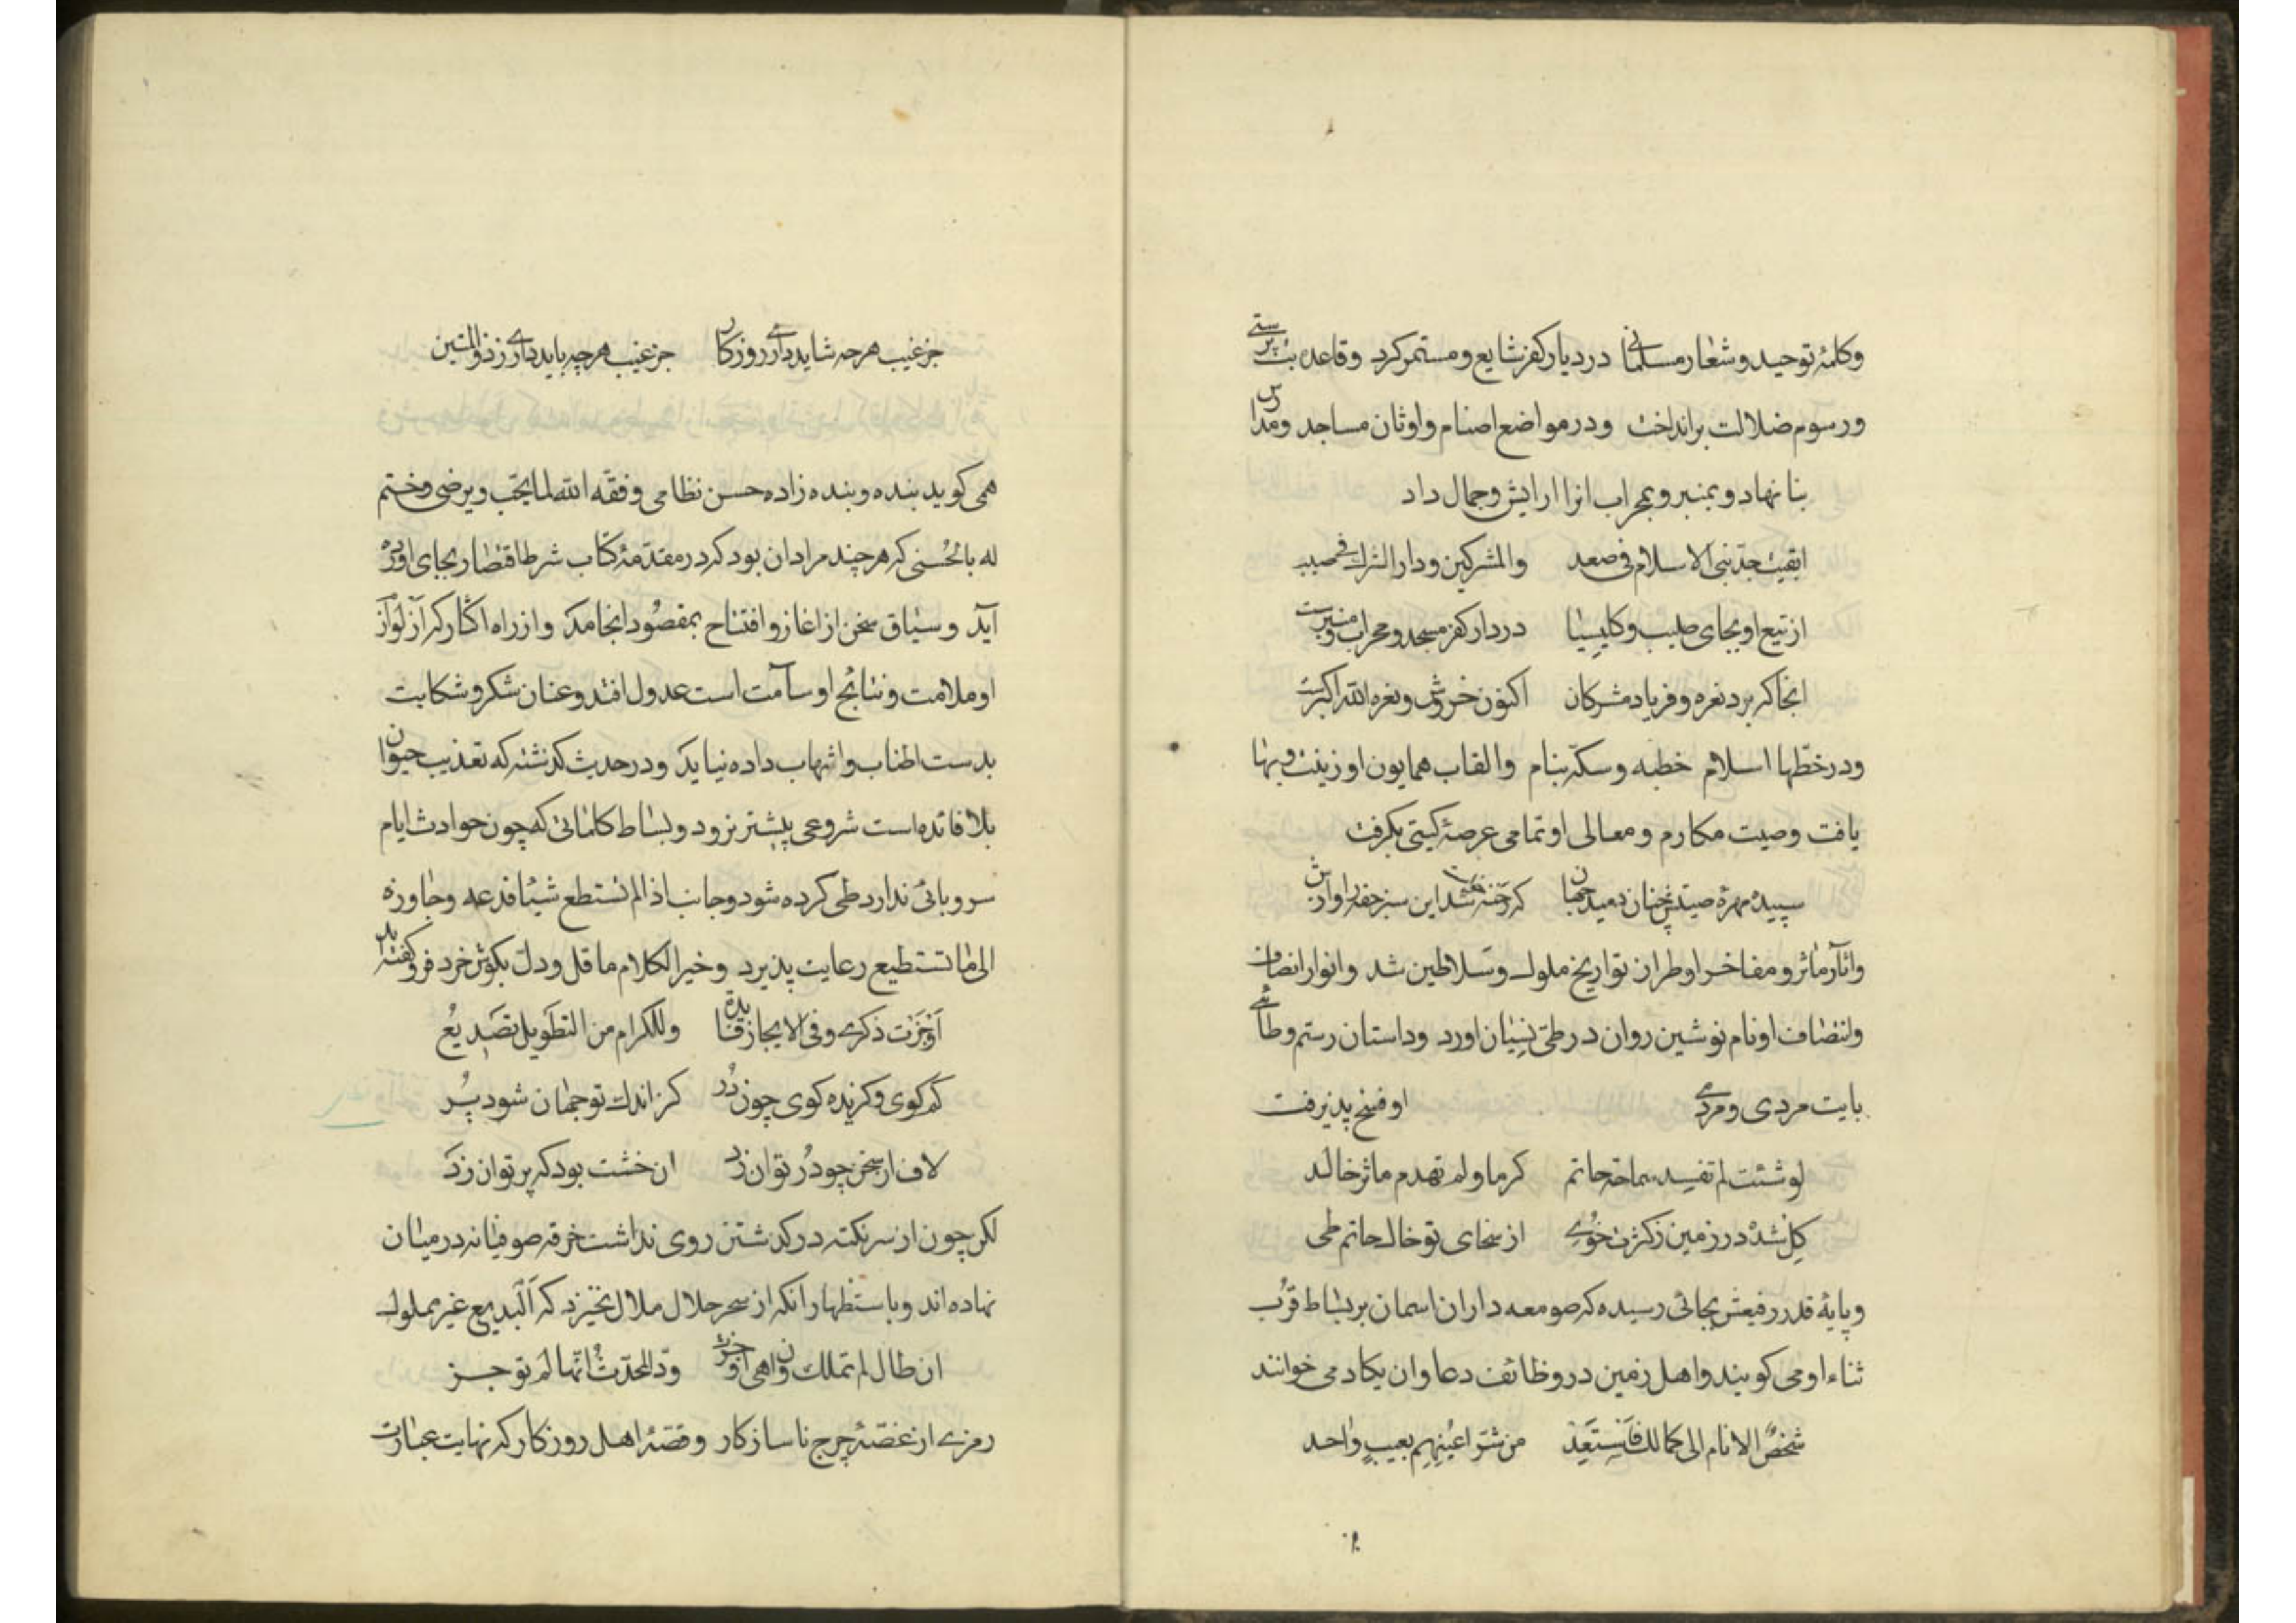 وکلمهٔ توحید وشعار مسلمانی در دیار کفر شایع و مستمر کرد وقاعده بت پرستی
ورسوم ضلالت برانداخت ودر مواضع اصنام واوثان مساجد ومدارس
بنا نهاد و بمنبر و بمحراب انرا ارایش وجمال داد
ابقیت جد بنی الاسلام فی صعد والمشرکین ودار الشرک فی صبب
از تیغ او بجای صلیب وکلیسیا در دار کفر مسجد ومحراب ومنبرست
انجا کہ بود نعره وفریاد مشرکان اکنون خروش ونعره الله اکبرست
ودر خطّها اسلام خطبه وسکّه بنام والقاب همایون او زینت وبها
یافت وصیت مکارم ومعالی او تمامی عرصهٔ کیتی بکرفت
سپیده مهرهٔ صیتش چنان دمید جهان که رخنه شد این سبز حقه را اوازش
واثار ماثر ومفاخر او طراز تواریخ ملوک وسلاطین شد وانوار انصاف
وانتصاف او نام نوشین روان در طیّ نسیان اورد وداستان رستم وطائی
بایت مردی ومردمی او فسخ پذیرفت
لو شئت لم تفسد سماحة حاتم کرما ولم تهدم ماثر خالد
کل شد در زمین زکثرت خوی از سخای تو خاک حاتم طی
وپایهٔ قدر رفیعش بجائی رسیده که صومعه داران اسمان بر بساط قرب
ثناء او می کویند واهل زمین در وظائف دعا وان یکاد می خوانند
شخص الانام الی کمالک فاستعذ من شر اعینهم بعیب واحد
جز غیب هرچه شاید داری روزکار جز عیب هرچه باید داری ز ذوالمنین
همی کوید بنده وبنده زاده حسن نظامی وفقه الله لما یحب ویرضی وختم
له بالحسنی که هر چند مراد ان بود که در مقدمهٔ کتاب شرط اقتصار بجای اورده
آید وسیاق سخن از اغاز و افتتاح بمقصود انجامد واز راه اکثار که از لوازم
او ملامت ونتایج او سآمت است عدول افتد وعنان شکر وشکایت
بدست اطناب واشهاب داده نیاید ودر حدیث کذشته که تعذیب حیوان
بلا فائده است شروعی پیشتر نرود وبساط کلماتی که چون حوادث ایام
سر وپائی ندارد طی کرده شود وجانب اذا لم تستطع شیئا فدعه وجاوزه
الی ما تستطیع رعایت پذیرد وخیر الکلام ما قل ودل بکوش خرد فرو کفته اید
اوجزت ذکری وفی الایجاز فایدة وللکرام من التطویل تصدیع
کم کوی وکزیده کوی چون در کز اندک تو جهان شود پر
لاف از سخن چو در توان زد ان خشت بود که پر توان زد
لکن چون از سر نکته در کذشتن روی نداشت خرقه صوفیانه در میان
نهاده اند وباستظهار انکه از سحر حلال ملال نخیزد که البدیع غیر مملول
ان طال لم تملل وان هی اوجزت ود المحدّث انها لم توجز
رمزی از غصّهٔ چرخ ناسازکار وقصّهٔ اهل روزکار که نهایت عبارت